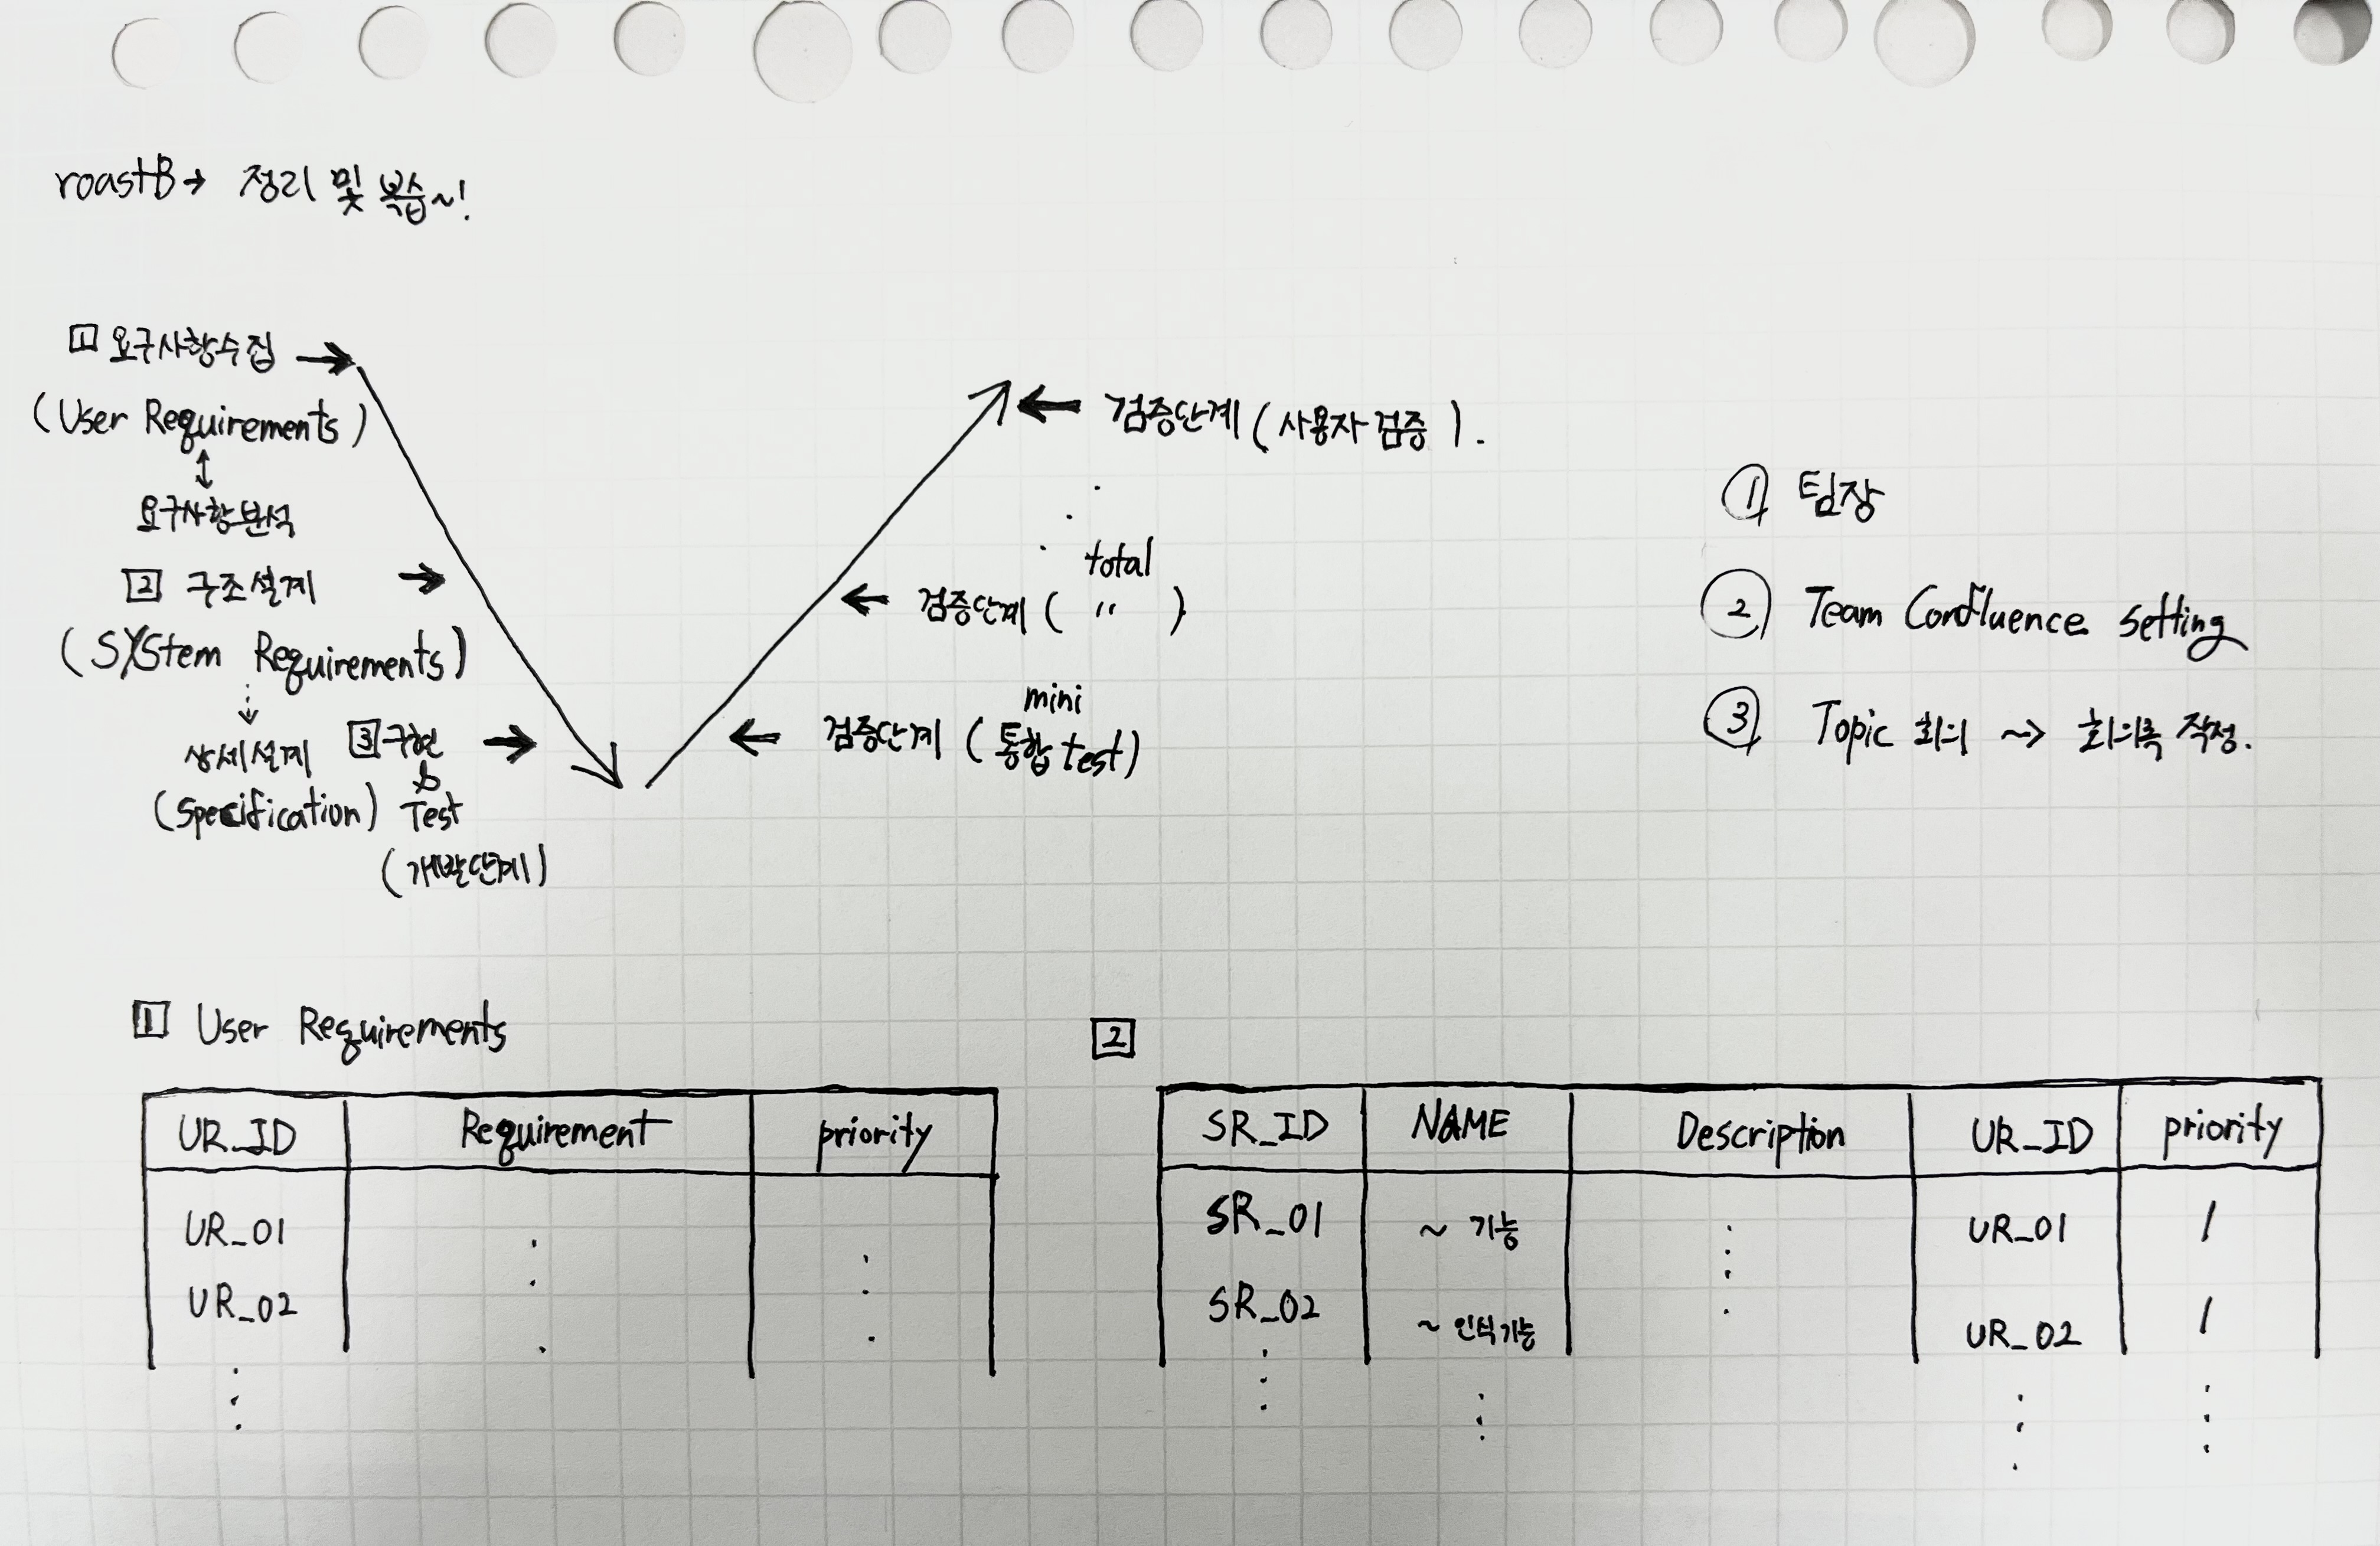 roastB → 정리 및 복습~!
1 요구사항수집 →
(User Requirements)
↕
요구사항분석
2 구조설계 →
(SYStem Requirements)
상세설계
(Specification)
3 구현 →
&
Test
(개발단계)
← 검증단계 (사용자 검증).
total
← 검증단계 ( 〃 )
mini
← 검증단계 (통합 test)
① 팀장
② Team Confluence setting
③ Topic 회의 ~> 회의록 작성.
1 User Requirements
UR_ID Requirement priority
UR_01
UR_02
2
SR_ID NAME Description UR_ID priority
SR_01 ~ 기능 UR_01 1
SR_02 ~ 인식기능 UR_02 1